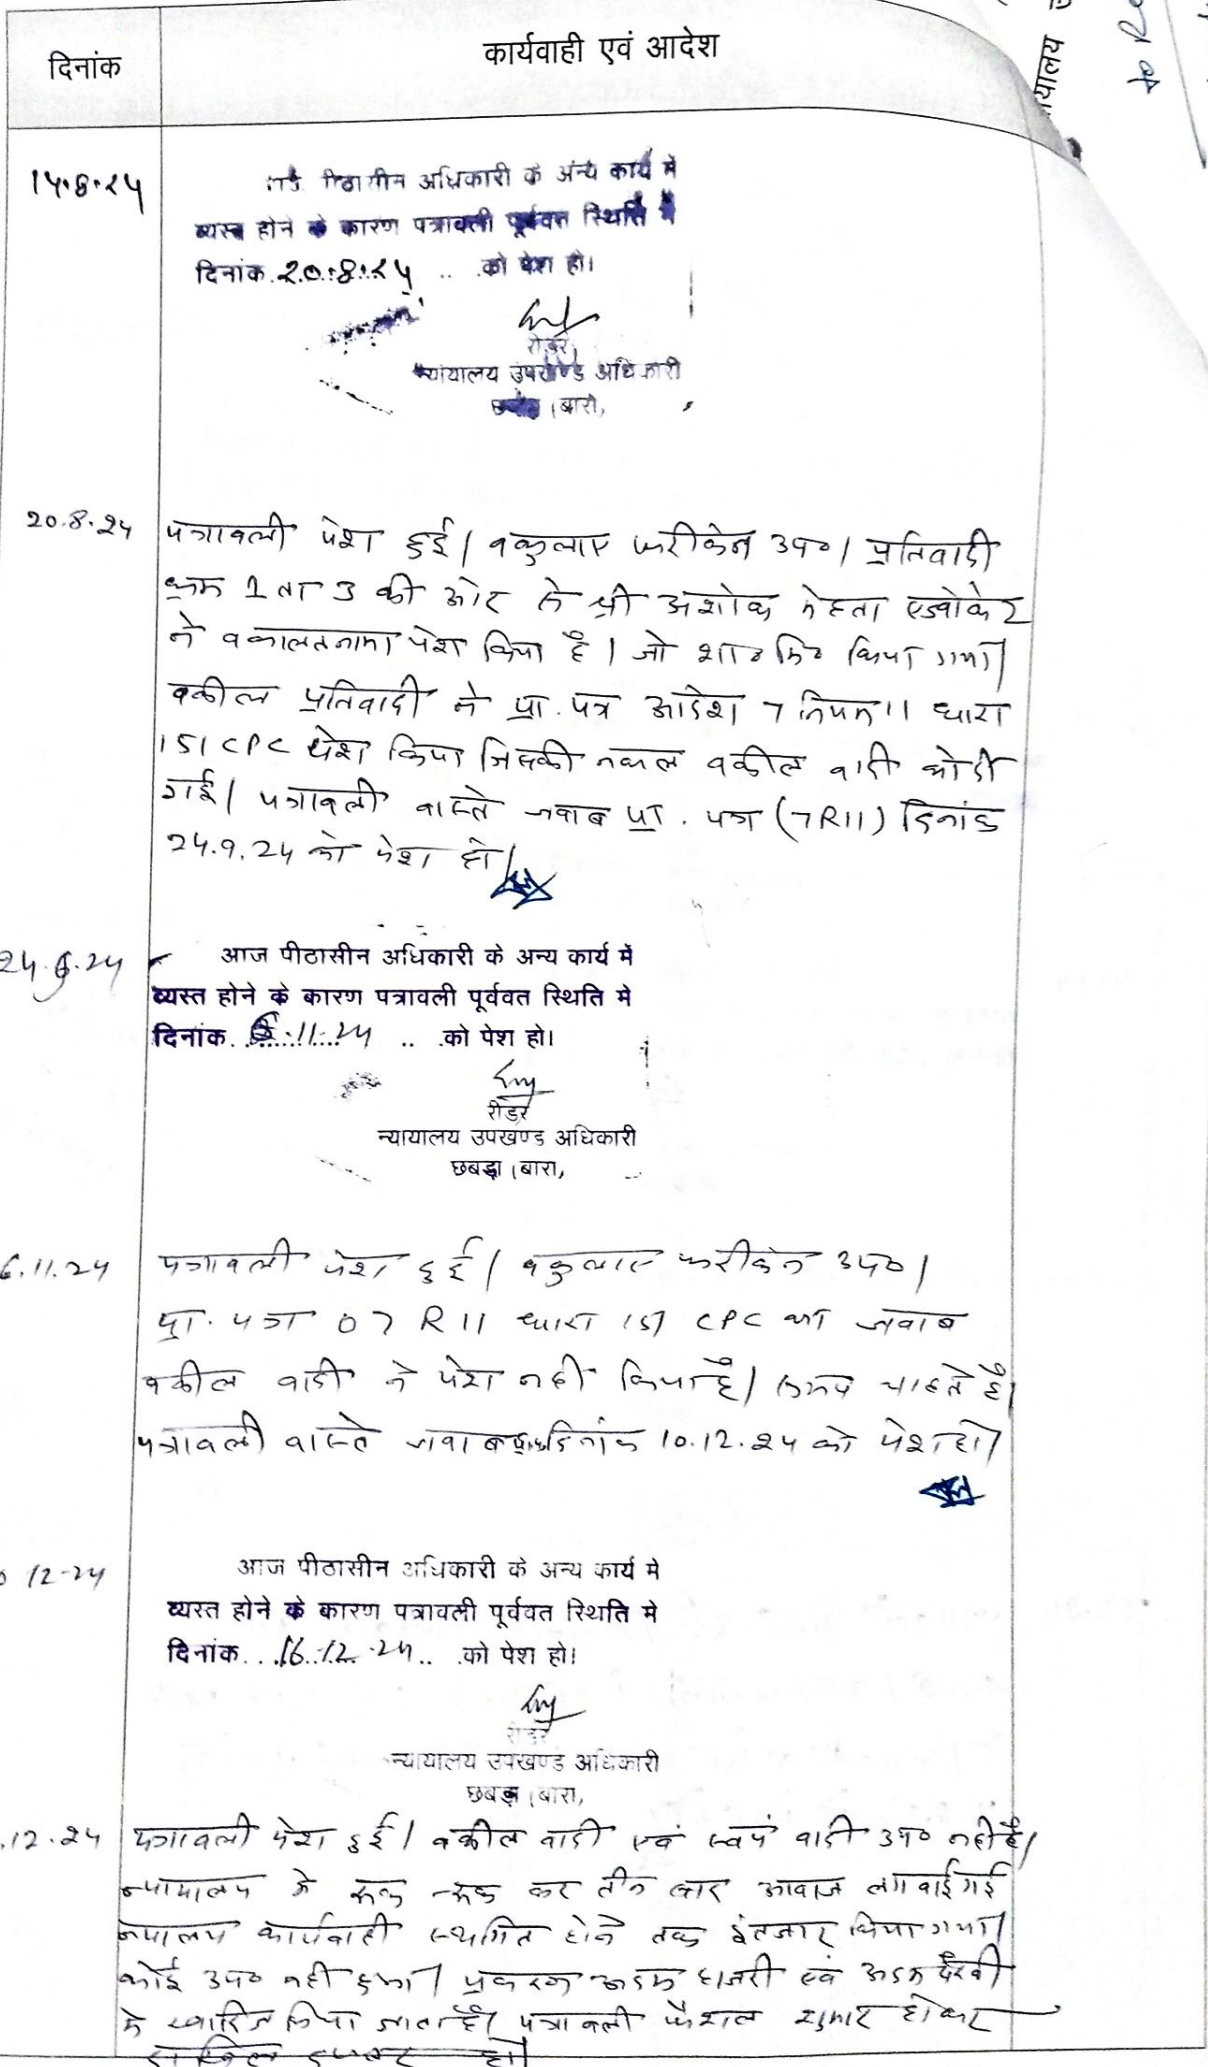 दिनांक
कार्यवाही एवं आदेश
यालय
14.8.24
पीठासीन अधिकारी के अन्य कार्य में
व्यस्त होने के कारण पत्रावली पूर्ववत स्थिति में
दिनांक 20.8.24 .. .को पेश हो।
रीडर
न्यायालय उपखण्ड अधिकारी
(बारां)
20.8.24
पत्रावली पेश हुई। वकुलाए फरीकेन उप०। प्रतिवादी
क्रम 1 ता 3 की ओर से श्री अशोक मेहता एडवोकेट
ने वकालतनामा पेश किया है। जो शा० मि० किया गया।
वकील प्रतिवादी ने प्रा. पत्र आदेश 7 नियम 11 धारा
151 CPC पेश किया जिसकी नकल वकील वादी को दी
गई। पत्रावली वास्ते जवाब प्रा. पत्र (7R11) दिनांक
24.9.24 को पेश हो।
24.9.24
आज पीठासीन अधिकारी के अन्य कार्य में
व्यस्त होने के कारण पत्रावली पूर्ववत स्थिति मे
दिनांक. 6.11.24 .. .को पेश हो।
रीडर
न्यायालय उपखण्ड अधिकारी
छबड़ा (बारां)
6.11.24
पत्रावली पेश हुई। वकुलाए फरीकेन उप०।
प्रा. पत्र 07 R 11 धारा 151 CPC का जवाब
वकील वादी ने पेश नही किया है। समय चाहते है।
पत्रावली वास्ते जवाब दिनांक 10.12.24 को पेश हो।
12-24
आज पीठासीन अधिकारी के अन्य कार्य मे
व्यस्त होने के कारण पत्रावली पूर्ववत स्थिति मे
दिनांक. 16.12.24 .. .को पेश हो।
रीडर
न्यायालय उपखण्ड अधिकारी
छबड़ा (बारां)
.12.24
पत्रावली पेश हुई। वकील वादी एवं स्वयं वादी उप० नही है।
न्यायालय मे रूक -रूक कर तीन बार आवाज लगवाई गई
न्यायालय कार्यवाही स्थगित होने तक इंतजार किया गया।
कोई उप० नही हुआ। प्रकरण अदम हाजरी एवं अदम पैरवी
मे खारिज किया जाता है। पत्रावली फैशल शुमार होकर
दाखिल दफ्तर हो।